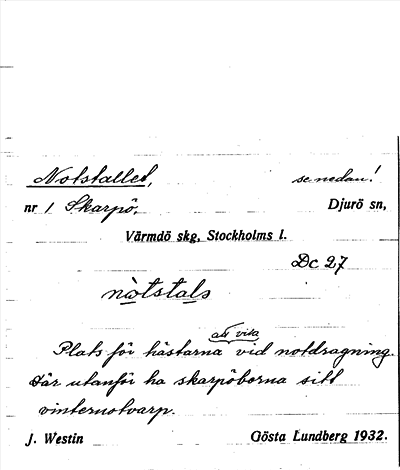 Notstallet, se nedan!
nr 1 Skarpö. Djurö sn,
Värmdö skg, Stockholms l.
Dc 27
nòtstals
att vila
Plats för hästarna vid notdragning.
Där utanför ha skarpöborna sitt
vinternotvarp.
J. Westin Gösta Lundberg 1932.